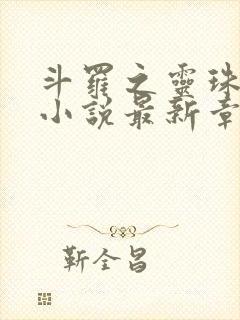 斗羅之靈珠
小說最新章
靳全昌